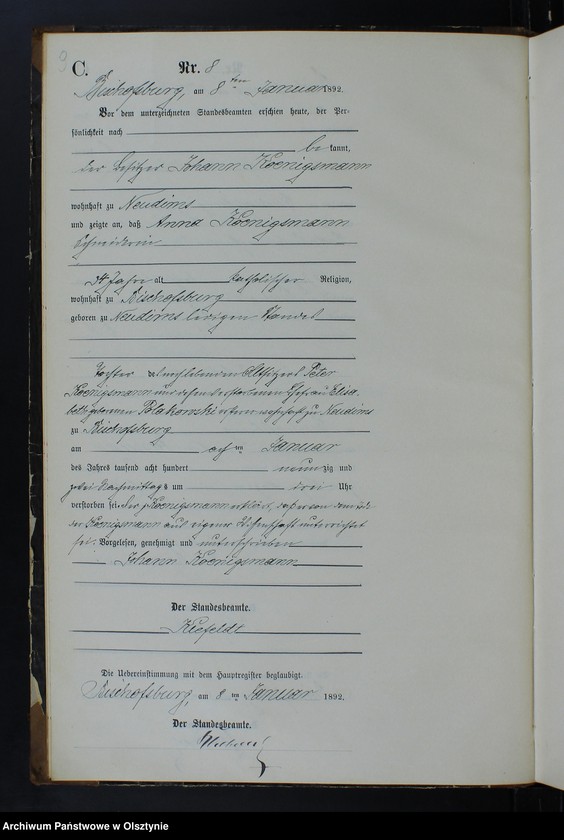 9
C.
Nr. 8
Bischofsburg, am 8ten Januar 1892.
Vor dem unterzeichneten Standesbeamten erschien heute, der Per-
sönlichkeit nach
be kannt,
der Besitzer Johann Koenigsmann
wohnhaft zu Neudims
und zeigte an, daß Anna Koenigsmann
Schneiderin
34 Jahre alt katholischer Religion,
wohnhaft zu Bischofsburg
geboren zu Neudims ledigen Standes
Tochter des noch lebenden Altsitzers Peter
Koenigsmann und dessen verstorbenen Ehefrau Elisa-
beth geborenen Polakowski wohnhaft zu Neudims
zu Bischofsburg
am ten Januar
des Jahres tausend acht hundert neunzig und
zwei Nachmittags um drei Uhr
verstorben sei. der Koenigsmann erklärt, daß er von dem Tode
der Koenigsmann aus eigener Wissenschaft unterrichtet
sei. Vorgelesen, genehmigt und unterschrieben
Johann Koenigsmann
Der Standesbeamte.
Kiefeldt
Die Uebereinstimmung mit dem Hauptregister beglaubigt.
Bischofsburg, am 8ten Januar 1892.
Der Standesbeamte.
Archiwum Państwowe w Olsztynie